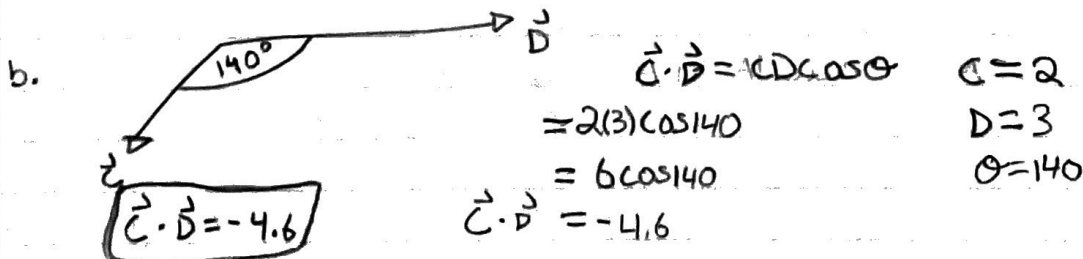 b.
140°
D⃗
C⃗
C⃗·D⃗=-4.6
C⃗·D⃗=CDcosθ
=2(3)cos140
=6cos140
C⃗·D⃗ =-4.6
C=2
D=3
θ=140